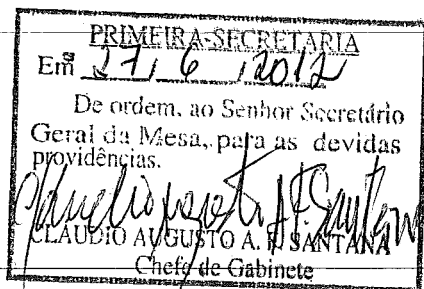 PRIMEIRA-SECRETARIA
Em 27/6/2012
De ordem, ao Senhor Secretário
Geral da Mesa, para as devidas
providências.
CLÁUDIO AUGUSTO A. F. SANTANA
Chefe de Gabinete